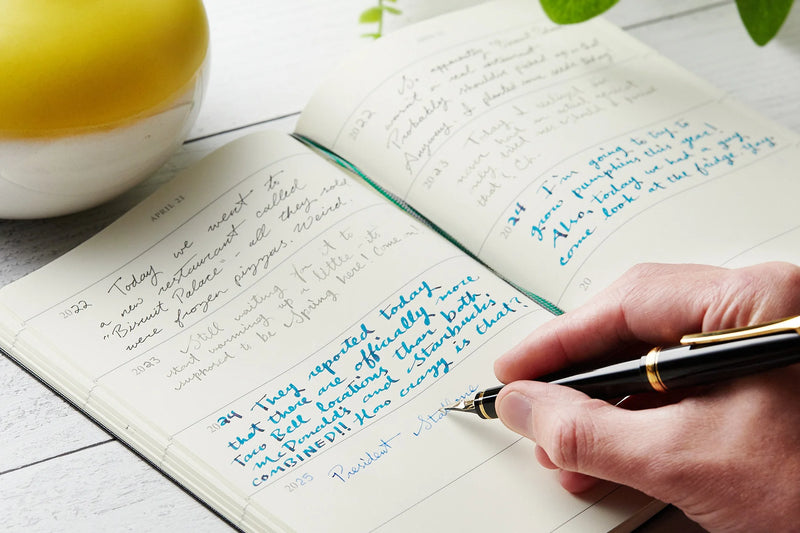 APRIL 21
2022 Today we went to
a new restaurant called
"Biscuit Palace" - all they sold
were frozen pizzas. Weird.
2023 Still waiting for it to
start warming up a little - it's
supposed to be Spring here! Come on!
2024 They reported today
that there are officially more
Taco Bell locations than both
McDonald's and Starbucks
COMBINED!! How crazy is that?
2025 President
2022 So, apparently "Biscuit
wasn't a real restaurant.
Probably should've picked up on that
Anyway, I planted some seeds today
2023 Today I realized
never had an actual
2024 I'm going to try to
grow pumpkins this year!
Also, today we had a guy
come look at the fridge. Yay.
20